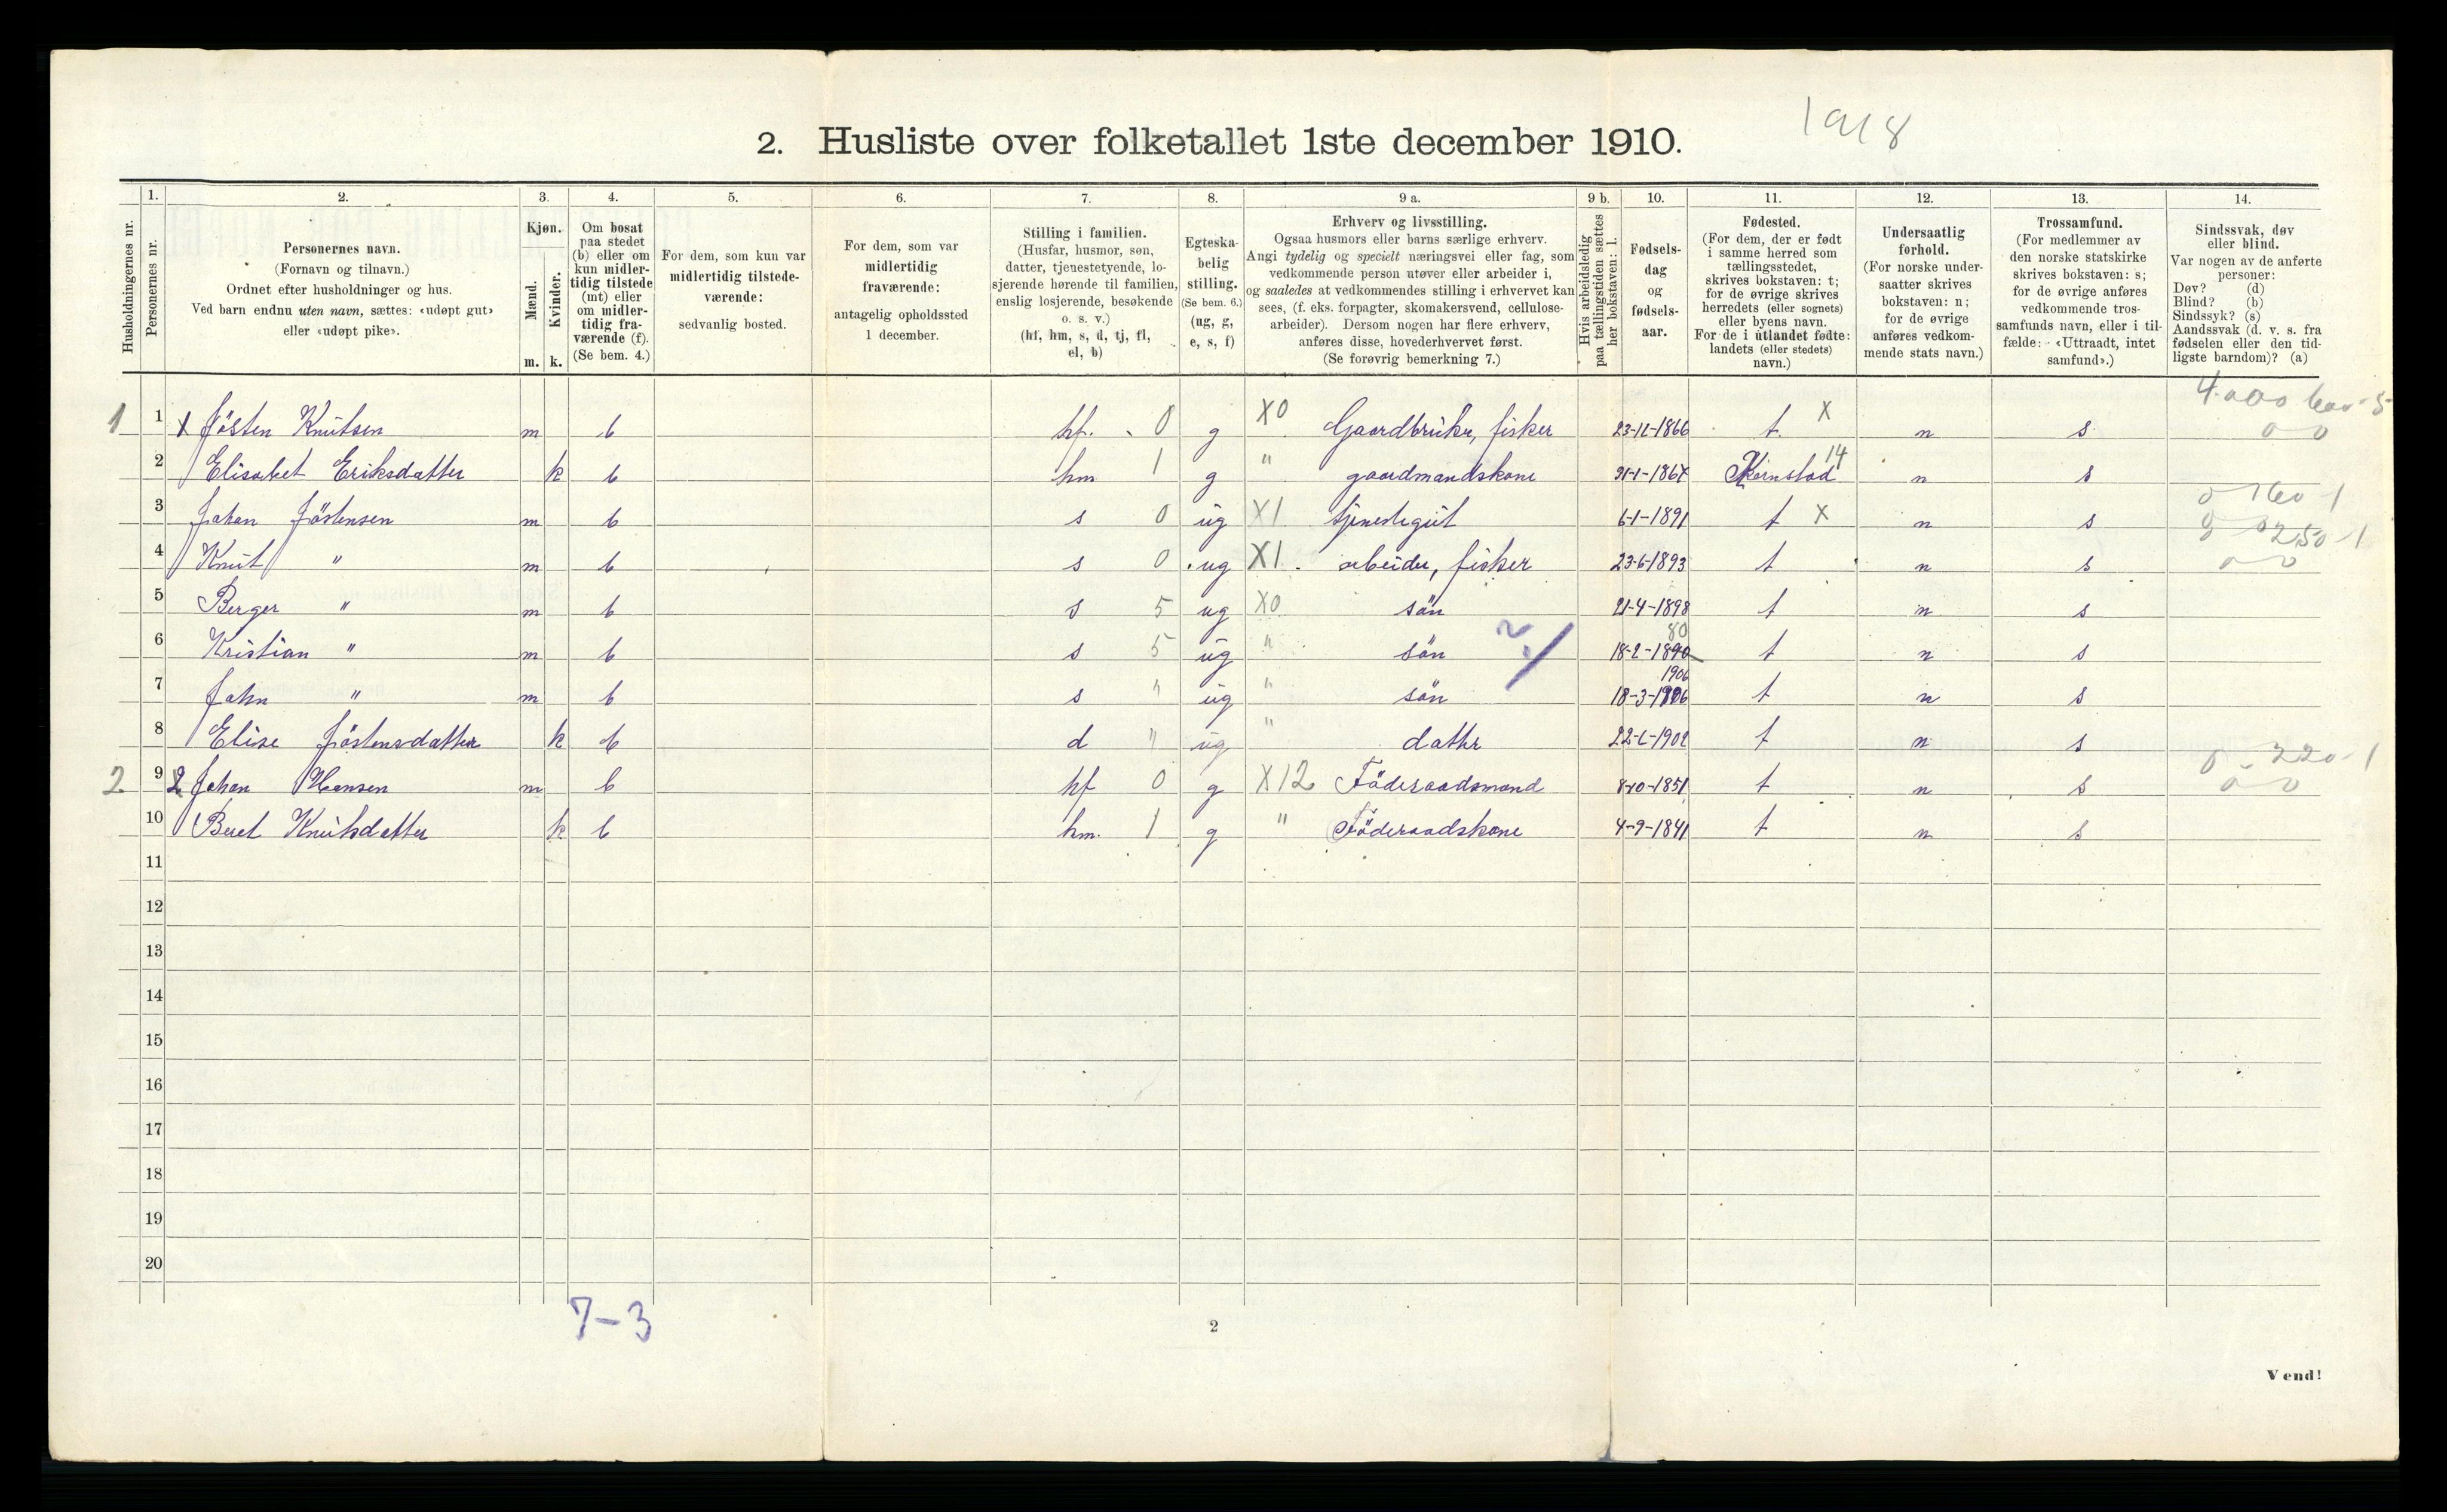 2. Husliste over folketallet 1ste december 1910.
1918
Husholdningernes nr.
1. Personernes nr.
2. Personernes navn. (Fornavn og tilnavn.) Ordnet efter husholdninger og hus. Ved barn endnu uten navn, sættes: «udøpt gut» eller «udøpt pike».
3. Kjøn. Mænd. m. Kvinder. k.
4. Om bosat paa stedet (b) eller om kun midlertidig tilstede (mt) eller om midlertidig fraværende (f). (Se bem. 4.)
5. For dem, som kun var midlertidig tilstedeværende: sedvanlig bosted.
6. For dem, som var midlertidig fraværende: antagelig opholdssted 1 december.
7. Stilling i familien. (Husfar, husmor, søn, datter, tjenestetyende, losjerende hørende til familien, enslig losjerende, besøkende o. s. v.) (hf, hm, s, d, tj, fl, el, b)
8. Egteskabelig stilling. (Se bem. 6.) (ug, g, e, s, f)
9 a. Erhverv og livsstilling. Ogsaa husmors eller barns særlige erhverv. Angi tydelig og specielt næringsvei eller fag, som vedkommende person utøver eller arbeider i, og saaledes at vedkommendes stilling i erhvervet kan sees, (f. eks. forpagter, skomakersvend, cellulosearbeider). Dersom nogen har flere erhverv, anføres disse, hovederhvervet først. (Se forøvrig bemerkning 7.)
9 b. Hvis arbeidsledig paa tællingstiden sættes her bokstaven: l.
10. Fødselsdag og fødselsaar.
11. Fødested. (For dem, der er født i samme herred som tællingsstedet, skrives bokstaven: t; for de øvrige skrives herredets (eller sognets) eller byens navn. For de i utlandet fødte: landets (eller stedets) navn.)
12. Undersaatlig forhold. (For norske undersaatter skrives bokstaven: n; for de øvrige anføres vedkommende stats navn.)
13. Trossamfund. (For medlemmer av den norske statskirke skrives bokstaven: s; for de øvrige anføres vedkommende trossamfunds navn, eller i tilfælde: «Uttraadt, intet samfund».)
14. Sindssvak, døv eller blind. Var nogen av de anførte personer: Døv? (d) Blind? (b) Sindssyk? (s) Aandssvak (d. v. s. fra fødselen eller den tidligste barndom)? (a)
1 1 x Jösten Knutsen m b hf. 0 g X0 Gaardbruker, fisker 23-12-1866 t. x n s
2 Elisabet Eriksdatter k b hm 1 g " gaardmandskone t 14 n s
3 Johan Jöstensen m b s 0 ug X1 tjenestegut 6-1-1891 t x n s
4 Knut " m b s 0 ug X1. arbeider, fisker 23-6-1893 t n s
5 Berger " m b s 5 ug X0 sön 21-4-1898 t n s
6 Kristian " m b s 5 ug " sön 18-2-1890 80 t n s
7 John " m b s " ug " sön 18-3-1906 1906 t n s
8 Elise Jöstensdatter k b d " ug " datter t n s
2 9 2 Johan Hansen m b hf 0 g X12 Föderaadsmand 8-10-1851 t n s
10 Beret Knutsdatter k b hm. 1 g " Föderaadskone 4-9-1841 t n s
11
12
13
14
15
16
17
18
19
20
7-3
2
Vend!